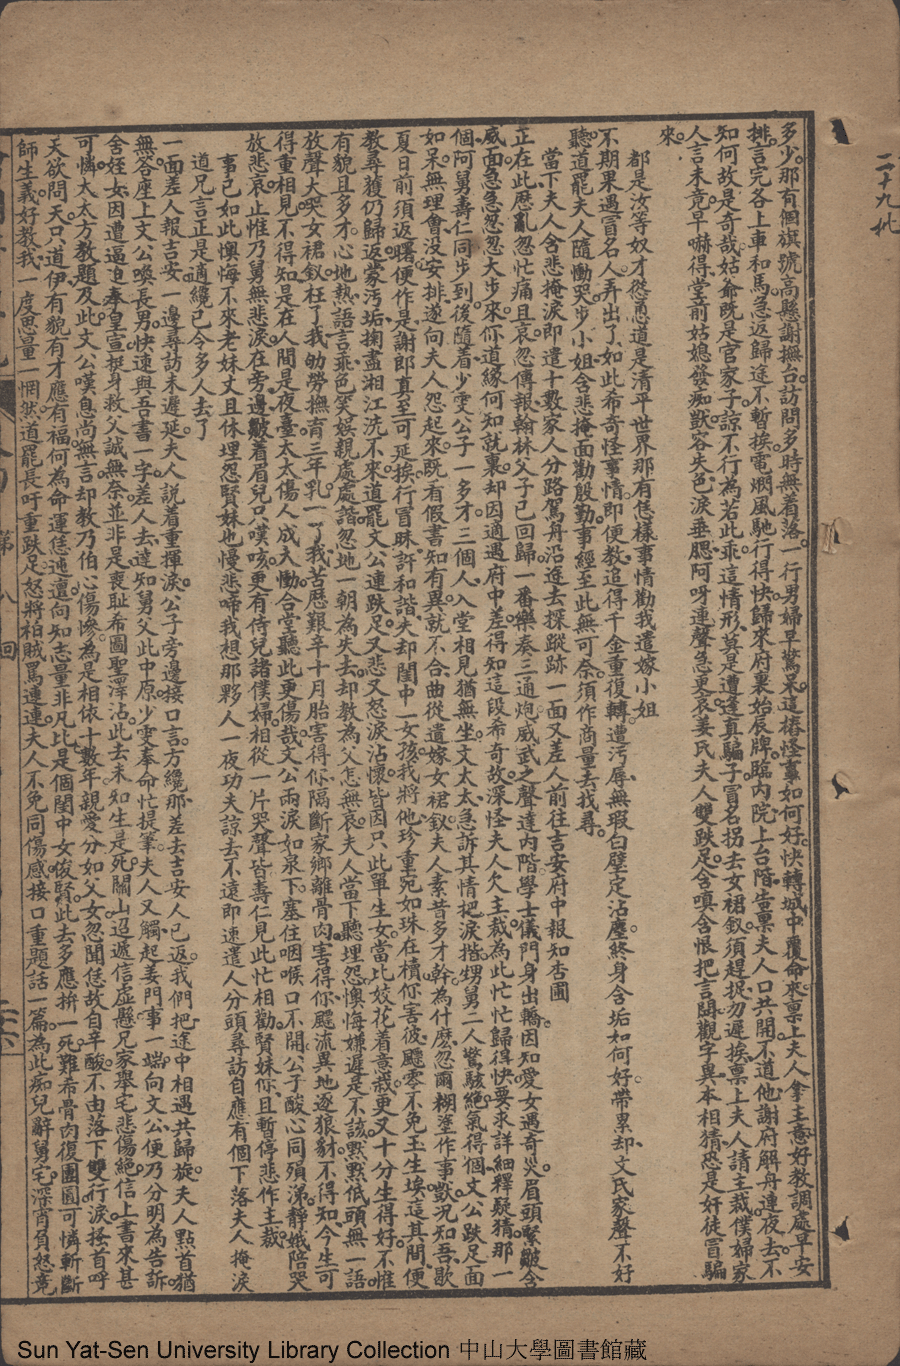 二十九北
多少。那有個旗號高懸謝撫台。訪問多時無着落。一行男婦早驚呆。這樁怪事如何好。快轉城中覆命來。稟上夫人拿主意。好教調處早安
排。言完各上車和馬。急返歸途不暫挨。電爛風馳行得快。歸來府裏始辰牌。臨內院上台階。啬稟夫人口共開。不道他謝府解舟連夜去。不
知何故是奇哉。姑爺既是官家子。諒不行為若此乖。這情形莫是遭逢真騙子。冒名拐去女裙釵。須趕捉勿遲挨。稟上夫人請主裁。僕婦家
人言未竟。早嚇得堂前姑媳發痴獃。容失色淚垂腮。阿呀連聲急更哀。姜氏夫人雙跌足。含嗔含恨把言開。觀字與本相猜。恐是奸徒冒騙
來。
都是汝等奴才慫恿道是清平世界那有恁樣事情勸我遣嫁小姐
不期果遇冒名人。弄出了如此希奇怪事情。即便教追得千金重復轉。遭污辱無瑕白璧定沾塵。終身含垢如何好。帶累却文氏家聲不好
聽。道罷夫人隨慟哭。步小姐含悲掩面勸殷勤。事經至此無可奈。須作商量去找尋。
當下夫人含悲掩淚即遣十數家人分路駕舟沿途去探蹤跡一面又差人前往吉安府中報知杏圃
正在此歷亂忽忙痛且哀。忽傳報翰林父子已回歸。一番樂奏三通炮。威武之聲達內階。學士儀門身出轎。因知愛女遇奇災。眉頭緊皺含
威面。急急忽忽大步來。你道緣何知就裏。却因適遇府中差。得知這段希奇故。深怪夫人欠主裁。為此忙忙歸得快。要求詳細釋疑猜。那一
個阿舅壽仁同步到。後隨着少雯公子一多才。三個人入堂相見猶無坐。文太太急訴其情把淚揩。甥舅二人驚駭絕。氣得個文公跌足面
如呆。無理會沒安排。遂向夫人怨起來。既看假書知有異。就不合曲從遣嫁女裙釵。夫人素昔多才幹。為什麽忽爾糊塗作事獃。況知吾歇
夏日前須返。曙便作是謝郎真至可延挨。行冒昧許和諧。夫却閨中一女孩。我將他珍重宛如珠在櫝。你害彼飄零不免玉生埃。這其間便
教尋獲仍歸返。蒙污垢掬盡湘江洗不來。道罷文公連跌足。又悲又怨淚沾懷。皆因只此單生女。當比姣花着意栽。更又十分生得好。不惟
有貌且多才。心地熟語言乖。色笑娛親處處諧。忽地一朝為失去。却教為父怎無哀。夫人當下聽埋怨。懊悔嫌遲是不該。黙黙低頭無一語。
放聲大哭女裙釵。枉了我劬勞撫育三年乳。一了我苦歷艱辛十月胎。害得你隔斷家鄉離骨肉。害得你飄流異地逐狼豺。不得知今生可
得重相見。不得知是在人間是夜臺。太太傷人成大慟。合堂聽此更傷哉。文公兩淚如泉下。塞住咽喉口不開。公子酸心同殞涕。靜娥陪哭
放悲哀。止惟乃舅無悲淚。在旁邊皺着眉兒只嘆咳。更有侍兒諸僕婦。相從一片哭聲皆。壽仁見此忙相勸。賢妹你且暫停悲作主裁
事已如此懊悔不來老妹丈且休埋怨賢妹也慢悲啼我想那夥人一夜功夫諒去不遠即速遣人分頭尋訪自應有個下落夫人掩淚
道兄言正是適纔已令多人去了
一面差人報吉安。一邊尋訪未遲延。夫人說着重揮淚。公子旁邊接口言。方纔那差去吉安人已返。我們把途中相遇共歸旋。夫人點首猶
無答。座上文公喚長男。快速與吾書一字。差人去達知舅父此中原。少雯奉命忙提筆。夫人又觸起姜門事一端。向文公便乃分明為告訴
舍姪女因遭逼迫奉皇宣。挺身救父誠無奈。並非是喪恥希圖聖澤沾。此去未知生是死。關山迢遞信虛懸。兄家舉宅悲傷絕。信上書來甚
可憐。太太方教題及此。文公嘆息尚無言。却教乃伯心傷慘。為是相依十數年。親愛分如父女。忽聞恁故自辛酸。不由落下雙行淚。搔首呼
天欲問天。只道伊有貌有才應有福。何為命運恁迍邅。向知志量非凡比。是個閨中女俊賢。此去多應拚一死。難希骨肉復團圓。可憐斬斷
師生義。好教我一度思量一惘然。道罷長吁重跌足。怒將柏賊罵連連。夫人不免同傷感。接口重題話一篇。為此痴兒辭舅宅。深宵負怒竟
第八回
Sun Yat-Sen University Library Collection 中山大學圖書館藏